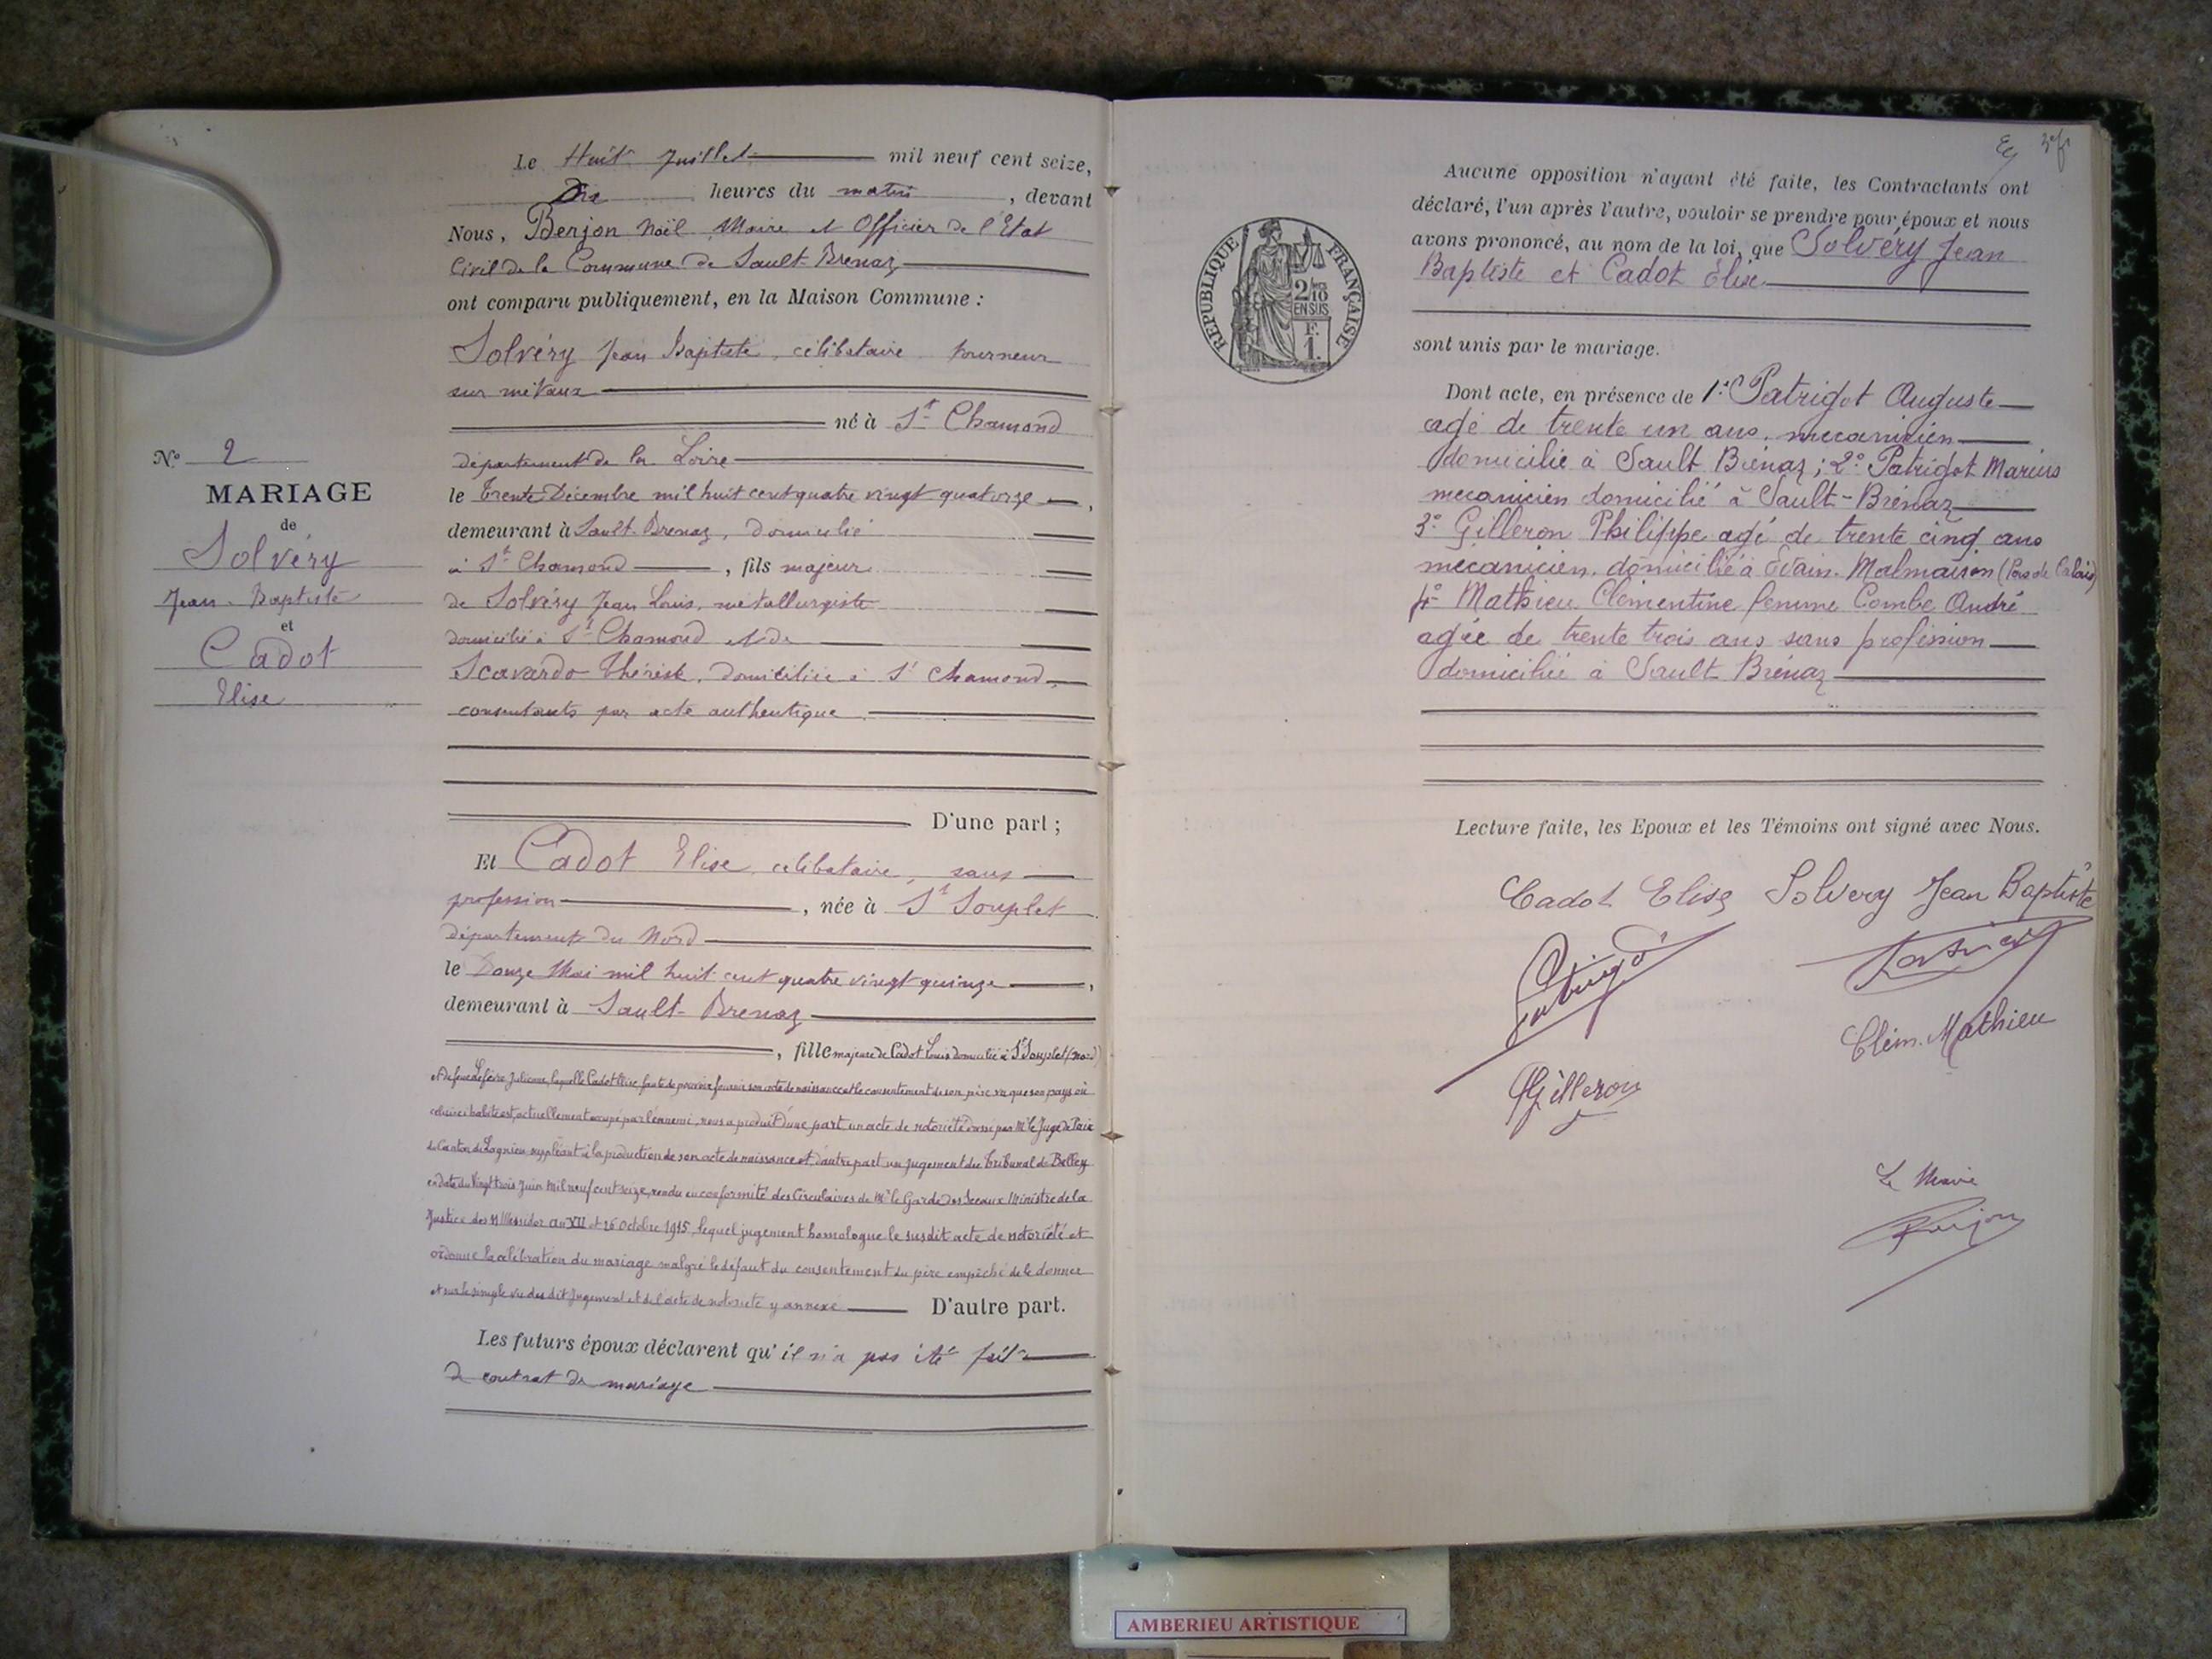 N.º 2
MARIAGE
de
Solvéry
Jean-Baptiste
et
Cadot
Elise
Le Huit Juillet mil neuf cent seize,
Dix heures du matin, devant
Nous, Berjon Noël Maire et Officier de l'Etat
Civil de la Commune de Sault-Brenaz
ont comparu publiquement, en la Maison Commune :
Solvéry Jean Baptiste, célibataire tourneur
sur métaux
né à St Chamond
département de la Loire
le trente Décembre mil huit cent quatre vingt quatorze,
demeurant à Sault-Brenaz, domicilié
à St Chamond, fils majeur
de Solvéry Jean Louis, métallurgiste
domicilié à St Chamond et de
Scavardo Thérèse, domiciliée à St Chamond,
consentants par acte authentique
D'une part ;
Et Cadot Elise, célibataire, sans
profession, née à St Souplet
département du Nord
le Douze Mai mil huit cent quatre vingt quinze,
demeurant à Sault-Brenaz
, fille majeure de Cadot Louis domicilié à St Souplet (Nord)
et de feue Lefèvre Julienne, laquelle Cadot Elise, faute de pouvoir fournir son acte de naissance et le consentement de son père vu que son pays où
celui-ci habite est actuellement occupé par l'ennemi, nous a produit d'une part, un acte de notoriété dressé par Mr le Juge de Paix
du Canton de Lagnieu suppléant à la production de son acte de naissance et, d'autre part un jugement du Tribunal de Belley
en date du Vingt trois Juin Mil neuf cent seize, rendu en conformité des Circulaires de Mr le Garde des Sceaux Ministre de la
Justice des 11 Messidor an XII et 26 Octobre 1915, lequel jugement homologue le susdit acte de notoriété et
ordonne la célébration du mariage malgré le défaut du consentement du père empêché de le donner
et sur le simple vu des dit Jugement et de l'acte de notoriété y annexé D'autre part.
Les futurs époux déclarent qu'il n'a pas été fait
de contrat de mariage
REPUBLIQUE FRANÇAISE
2/10
EN SUS
F.
1.
Aucune opposition n'ayant été faite, les Contractants ont
déclaré, l'un après l'autre, vouloir se prendre pour époux et nous
avons prononcé, au nom de la loi, que Solvéry Jean
Baptiste et Cadot Elise
sont unis par le mariage.
Dont acte, en présence de 1º Patrigot Auguste
agé de trente un ans, mecanicien
domicilié à Sault Brénaz ; 2º Patrigot Marius
mecanicien domicilié à Sault-Brénaz
3º Gilleron Philippe agé de trente cinq ans
mécanicien, domicilié à Evain-Malmaison (Pas de Calais)
4º Mathieu Clémentine femme Combe André
agée de trente trois ans sans profession
domiciliée à Sault Brénaz
Lecture faite, les Epoux et les Témoins ont signé avec Nous.
Cadot Elise Solvery Jean Baptiste
Patrigot
Clém. Mathieu
Gilleron
Le Maire
Berjon
AMBERIEU ARTISTIQUE